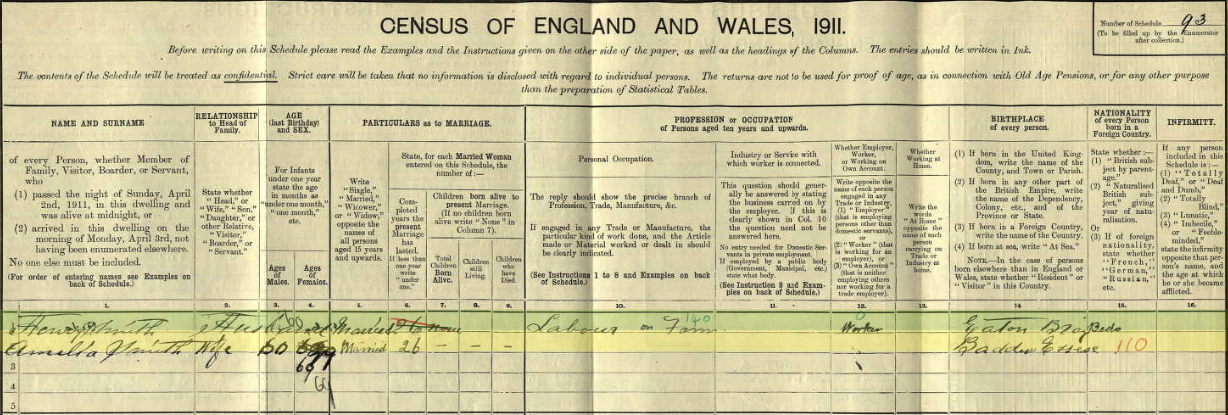 CENSUS OF ENGLAND AND WALES, 1911.
Number of Schedule 93
(To be filled up by the Enumerator
after collection.)
Before writing on this Schedule please read the Examples and the Instructions given on the other side of the paper, as well as the headings of the Columns. The entries should be written in Ink.
The contents of the Schedule will be treated as confidential. Strict care will be taken that no information is disclosed with regard to individual persons. The returns are not to be used for proof of age, as in connection with Old Age Pensions, or for any other purpose
than the preparation of Statistical Tables.
NAME AND SURNAME
of every Person, whether Member of
Family, Visitor, Boarder, or Servant,
who
(1) passed the night of Sunday, April
2nd, 1911, in this dwelling and
was alive at midnight, or
(2) arrived in this dwelling on the
morning of Monday, April 3rd, not
having been enumerated elsewhere.
No one else must be included.
(For order of entering names see Examples on
back of Schedule.)
RELATIONSHIP
to Head of
Family.
State whether
"Head," or
"Wife," "Son,"
"Daughter," or
other Relative,
"Visitor,"
"Boarder," or
"Servant."
AGE
(last Birthday)
and SEX.
For Infants
under one year
state the age
in months as
"under one month,"
"one month,"
etc.
Ages
of
Males.
Ages
of
Females.
PARTICULARS as to MARRIAGE.
Write
"Single,"
"Married,"
"Widower,"
or "Widow,"
opposite the
names of all
persons aged
15 years
and upwards.
State, for each Married Woman
entered on this Schedule, the
number of:—
Completed
years the
present
Marriage
has
lasted.
If less than
one year
write
"under
one."
Children born alive to
present Marriage.
(If no children born
alive write "None" in
Column 7).
Total
Children
Born
Alive.
Children
still
Living.
Children
who
have
Died.
PROFESSION or OCCUPATION
of Persons aged ten years and upwards.
Personal Occupation.
The reply should show the precise branch of
Profession, Trade, Manufacture, &c.
If engaged in any Trade or Manufacture, the
particular kind of work done, and the Article
made or Material worked or dealt in should
be clearly indicated.
(See Instructions 1 to 8 and Examples on back
of Schedule.)
Industry or Service with
which worker is connected.
This question should generally
be answered by stating
the business carried on by
the employer. If this is
clearly shown in Col. 10
the question need not be
answered here.
No entry needed for Domestic Servants
in private employment.
If employed by a public body
(Government, Municipal, etc.)
state what body.
(See Instruction 9 and Examples
on back of Schedule.)
Whether Employer,
Worker,
or Working on
Own Account.
Write opposite the
name of each person
engaged in any
Trade or Industry,
(1) "Employer" (that
is employing
persons other than
domestic servants),
or
(2) "Worker" (that
is working for an
employer), or
(3) "Own Account"
(that is neither
employing others
nor working for a
trade employer).
Whether
Working at
Home.
Write the
words
"At Home"
opposite the
name of each
person
carrying on
Trade or
Industry at
home.
BIRTHPLACE
of every person.
(1) If born in the United Kingdom,
write the name of the
County, and Town or Parish.
(2) If born in any other part of
the British Empire, write
the name of the Dependency,
Colony, etc., and of the
Province or State.
(3) If born in a Foreign Country,
write the name of the Country.
(4) If born at sea, write "At Sea."
NOTE.—In the case of persons
born elsewhere than in England or
Wales, state whether "Resident" or
"Visitor" in this Country.
NATIONALITY
of every Person
born in a
Foreign Country.
State whether:—
(1) "British subject
by parentage."
(2) "Naturalised
British subject,"
giving
year of naturalisation.
Or
(3) If of foreign
nationality,
state whether
"French,"
"German,"
"Russian,"
etc.
INFIRMITY.
If any person
included in this
Schedule is:—
(1) "Totally
Deaf," or "Deaf
and Dumb,"
(2) "Totally
Blind,"
(3) "Lunatic,"
(4) "Imbecile,"
or "Feeble-minded,"
state the infirmity
opposite that person's
name, and
the age at which
he or she became
afflicted.
1. 2. 3. 4. 5. 6. 7. 8. 9. 10. 11. 12. 13. 14. 15. 16.
Henry Smith Married Labour on Farm 140 Worker Eaton Beds
Amelia Smith Wife 60 Married 26 – – – Essex 110
3
4
5